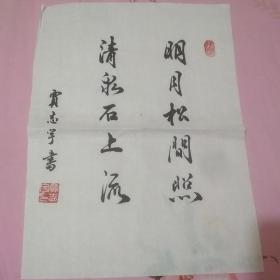 明月松間照
清泉石上流
賈志军書